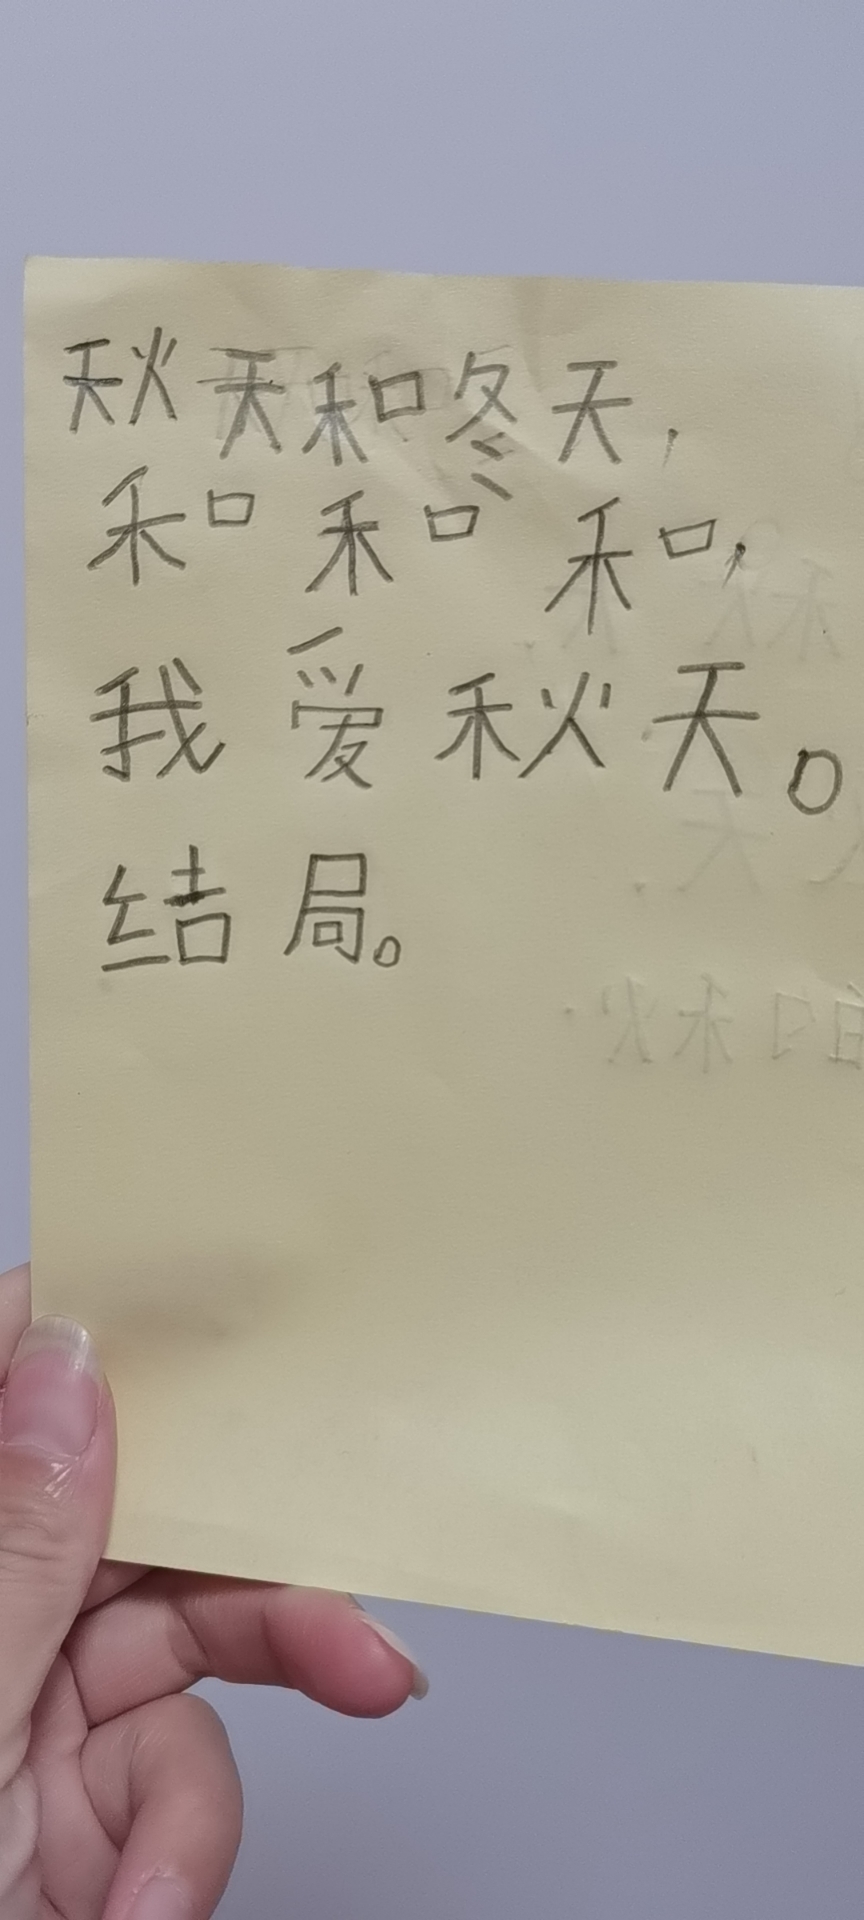 秋天和冬天，
和和和，
我爱秋天。
结局。